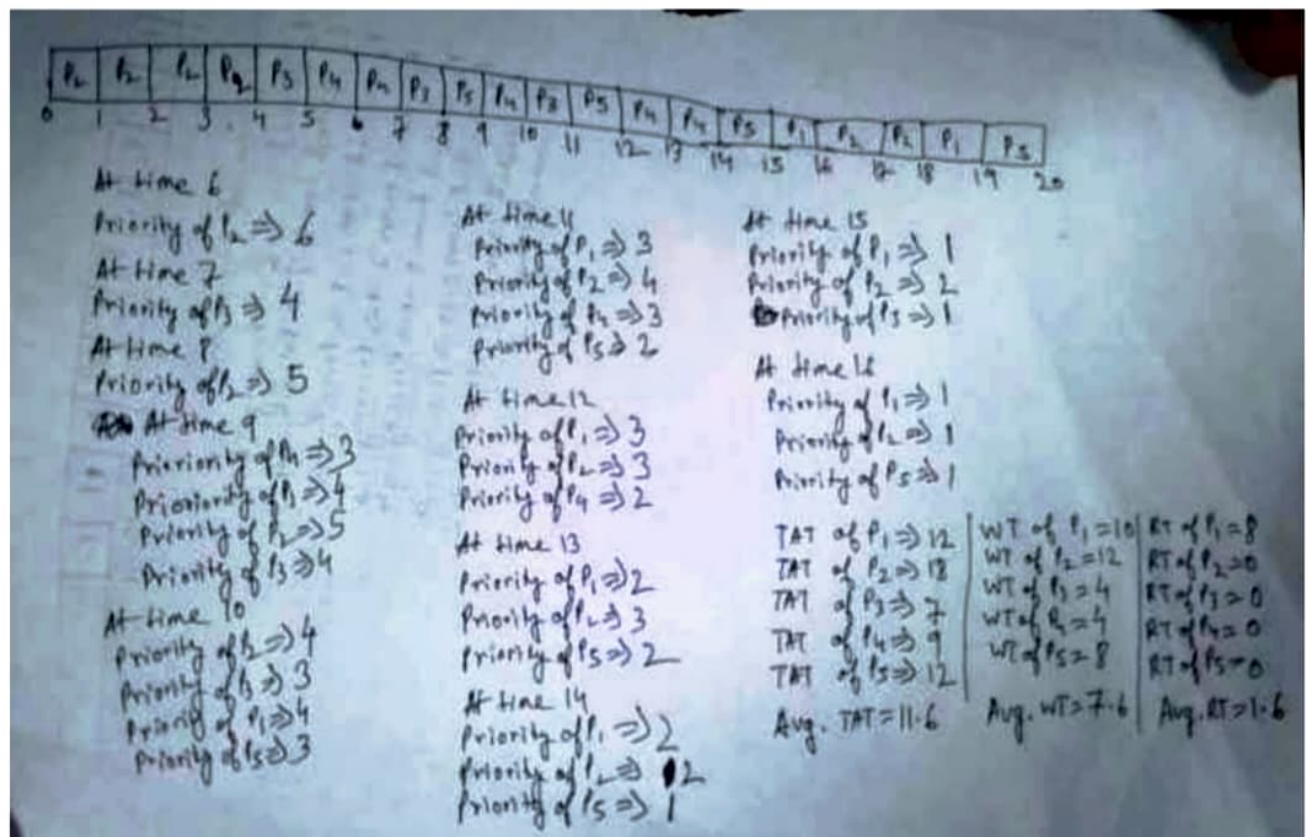 P2 P2 P2 P2 P3 P4 P4 P3 P5 P4 P3 P5 P4 P4 P5 P1 P2 P2 P1 P5
0 1 2 3 4 5 6 7 8 9 10 11 12 13 14 15 16 17 18 19 20
At time 6
Priority of P2 => 6
At time 7
Priority of P3 => 4
At time 8
Priority of P2 => 5
At time 9
Prioriority of P4 => 3
Prioriority of P1 => 4
Priority of P2 => 5
Priority of P3 => 4
At time 10
Priority of P2 => 4
Priority of P3 => 3
Priority of P1 => 4
Priority of P5 => 3
At time 11
Priority of P1 => 3
Priority of P2 => 4
Priority of P4 => 3
Priority of P5 => 2
At time 12
Priority of P1 => 3
Priority of P2 => 3
Priority of P4 => 2
At time 13
Priority of P1 => 2
Priority of P2 => 3
Priority of P5 => 2
At time 14
Priority of P1 => 2
Priority of P2 => 2
Priority of P5 => 1
At time 15
Priority of P1 => 1
Priority of P2 => 2
Priority of P5 => 1
At time 16
Priority of P1 => 1
Priority of P2 => 1
Priority of P5 => 1
TAT of P1 => 12 WT of P1 = 10 RT of P1 = 8
TAT of P2 => 18 WT of P2 = 12 RT of P2 = 0
TAT of P3 => 7 WT of P3 = 4 RT of P3 = 0
TAT of P4 => 9 WT of P4 = 4 RT of P4 = 0
TAT of P5 => 12 WT of P5 = 8 RT of P5 = 0
Avg. TAT = 11.6 Avg. WT = 7.6 Avg. RT = 1.6